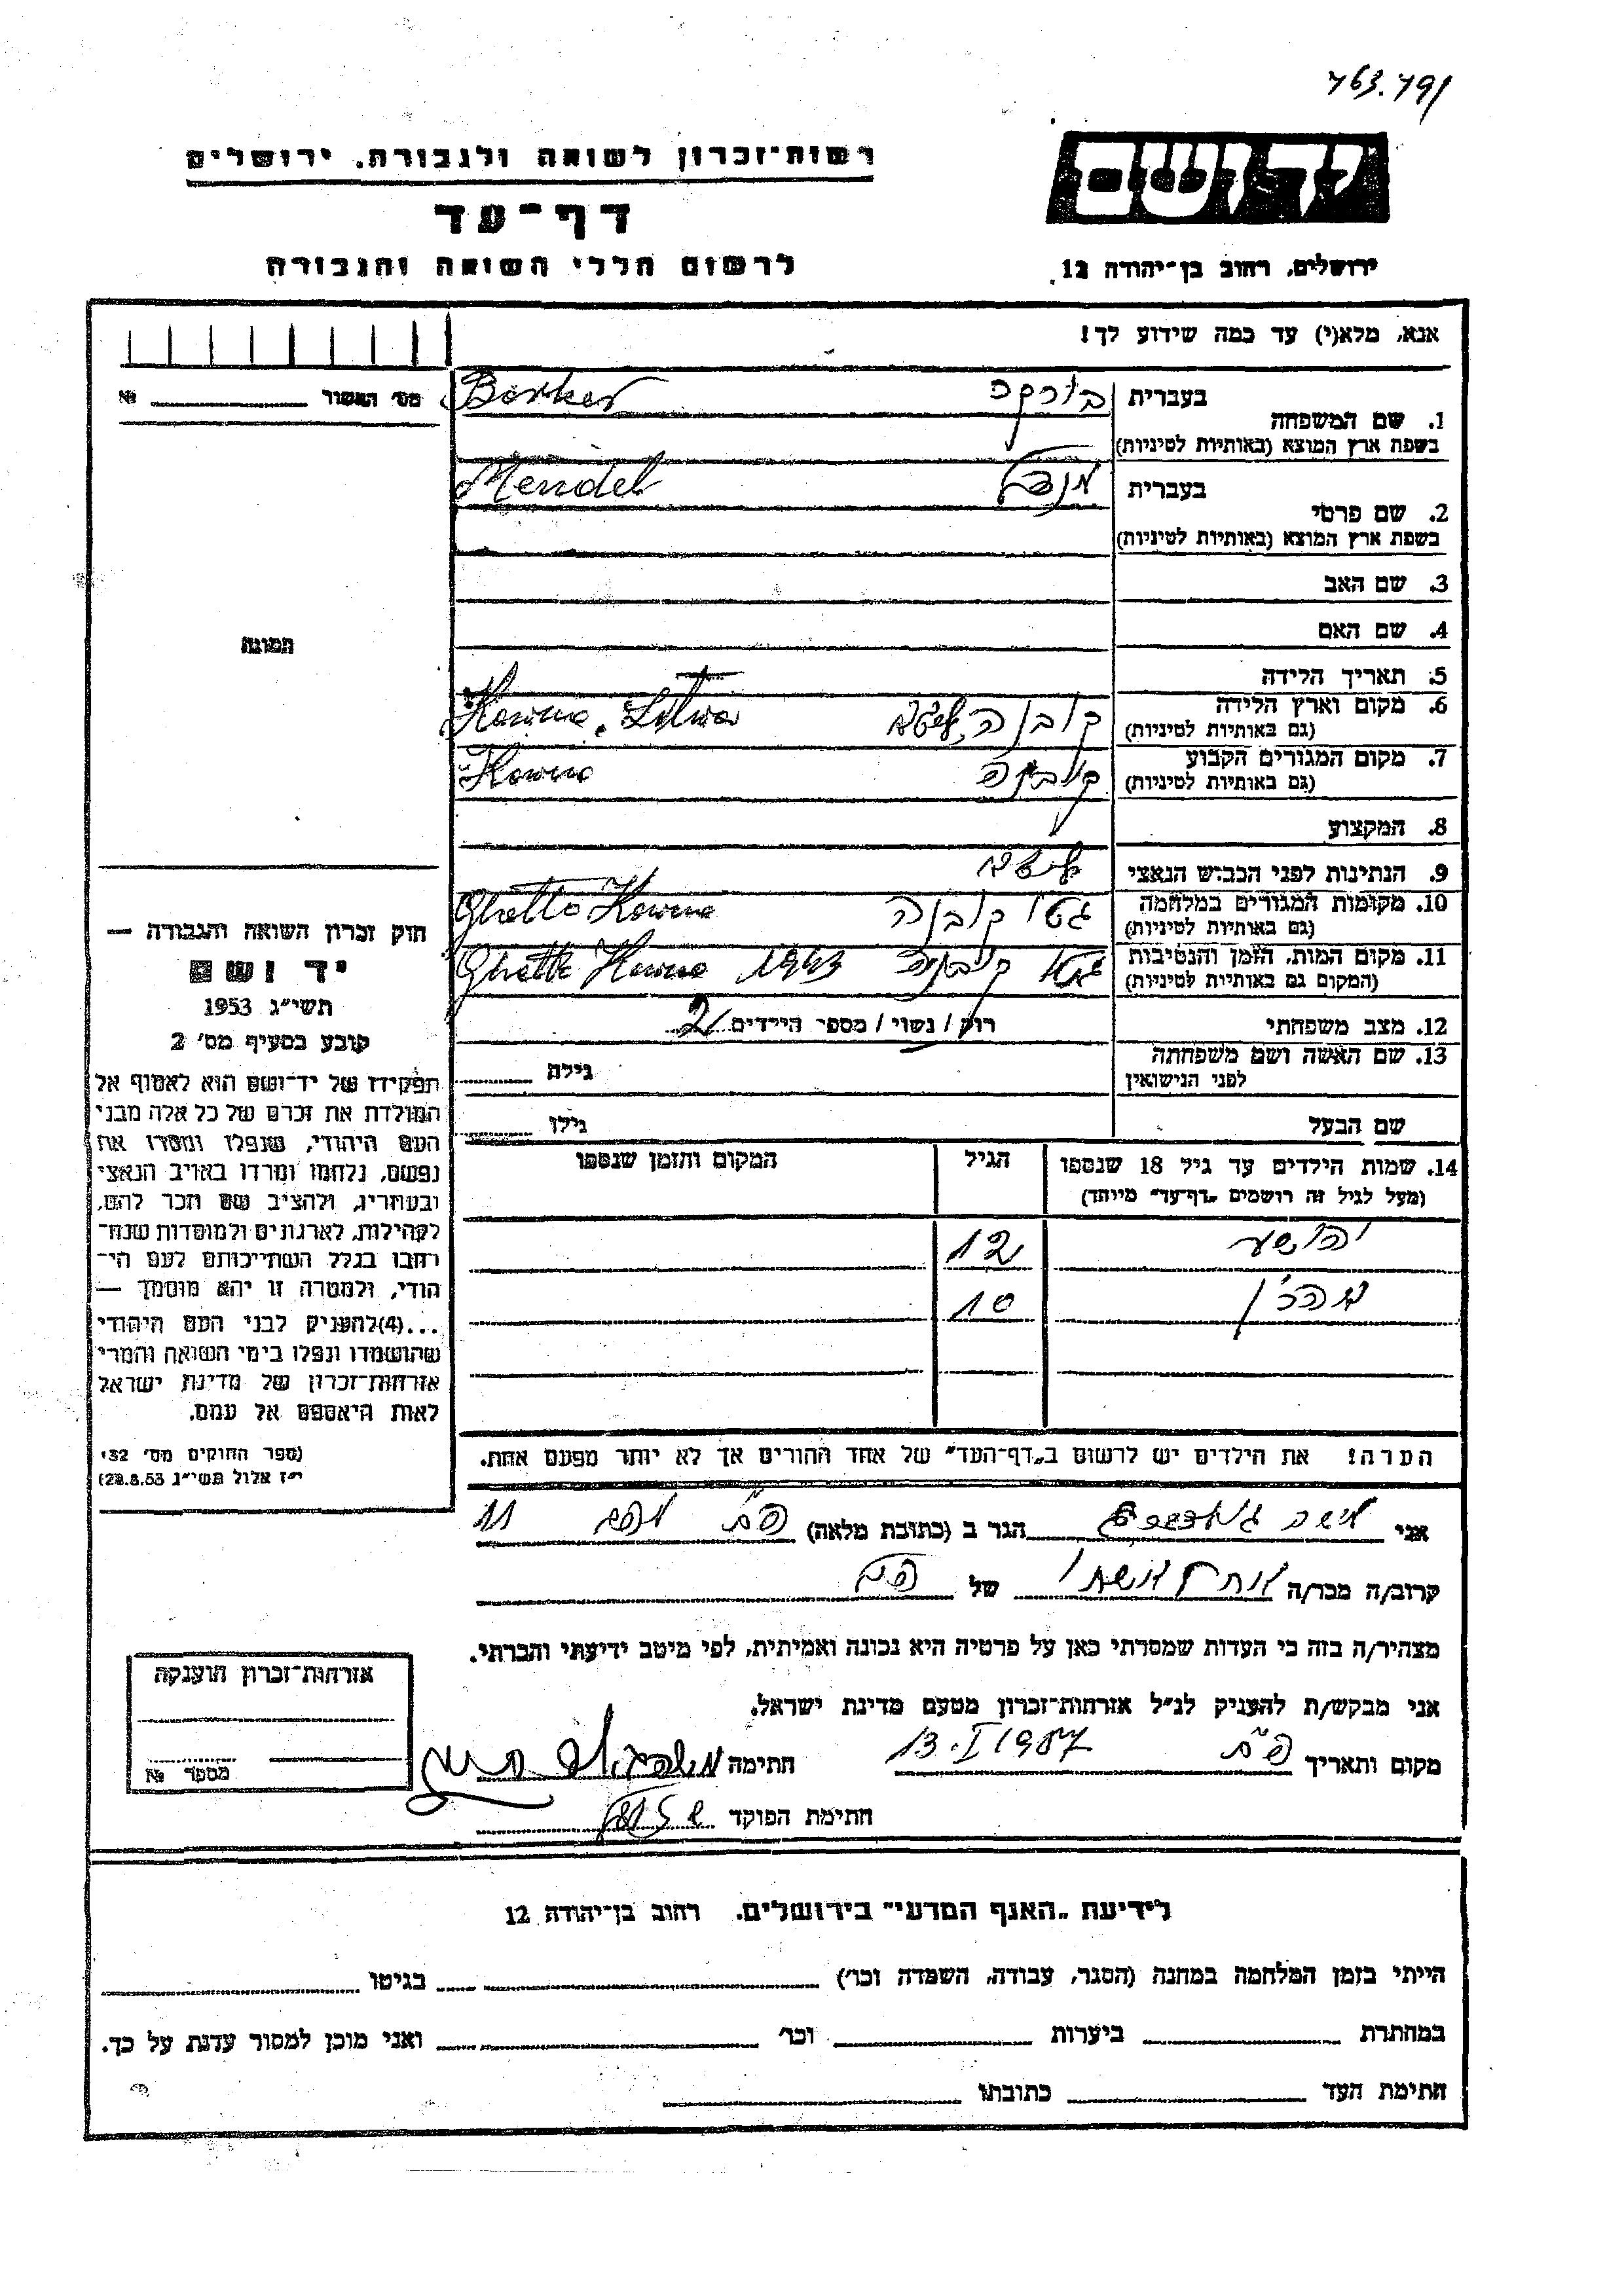 763.791
יד ושם
רשות-זכרון לשואה ולגבורה. ירושלים
דף-עד
לרשום חללי השואה והגבורה
ירושלים, רחוב בן-יהודה 12
אנא, מלא(י) עד כמה שידוע לך!
מס' האשור № 
1. שם המשפחה
בעברית
Borker
בשפת ארץ המוצא (באותיות לטיניות)
2. שם פרטי
בעברית מנדל
Mendel
בשפת ארץ המוצא (באותיות לטיניות)
3. שם האב
4. שם האם
תמונה
5. תאריך הלידה
6. מקום וארץ הלידה
(גם באותיות לטיניות)
קובנה, ליטא Kowno, Litwa
7. מקום המגורים הקבוע
(גם באותיות לטיניות)
קובנה Kowno
8. המקצוע
9. הנתינות לפני הכבוש הנאצי ליטא
10. מקומות המגורים במלחמה
(גם באותיות לטיניות)
גטו קובנה Ghetto Kowno
11. מקום המות, הזמן והנסיבות
(המקום גם באותיות לטיניות)
גטו קובנה 1943 Ghetto Kowno
12. מצב משפחתי רוק / נשוי / מספר הילדים 2
13. שם האשה ושם משפחתה
לפני הנישואין
גילה
שם הבעל גילו
14. שמות הילדים עד גיל 18 שנספו
(מעל לגיל זה רושמים "דף-עד" מיוחד)
הגיל
המקום והזמן שנספו
יהושע 12
10
הערה! את הילדים יש לרשום ב"דף-העד" של אחד ההורים אך לא יותר מפעם אחת.
חוק זכרון השואה והגבורה —
יד ושם
תשי"ג 1953
קובע בסעיף מס' 2
תפקידו של יד-ושם הוא לאסוף אל
המולדת את זכרם של כל אלה מבני
העם היהודי, שנפלו ומסרו את
נפשם, נלחמו ומרדו באויב הנאצי
ובעוזריו, ולהציב שם וזכר להם,
לקהילות, לארגונים ולמוסדות שנח-
רבו בגלל השתייכותם לעם הי-
הודי, ולמטרה זו יהא מוסמך —
...(4)להעניק לבני העם היהודי
שהושמדו ונפלו בימי השואה והמרי
אזרחות-זכרון של מדינת ישראל
לאות היאספם אל עמם.
(ספר החוקים מס' 132
י"ז אלול תשי"ג 28.8.53)
אני הגר ב (כתובת מלאה) 11
קרוב/ה מכר/ה של
מצהיר/ה בזה כי העדות שמסרתי כאן על פרטיה היא נכונה ואמיתית, לפי מיטב ידיעתי והכרתי.
אני מבקש/ת להעניק לנ"ל אזרחות-זכרון מטעם מדינת ישראל.
מקום ותאריך 13.I 1957 חתימה
חתימת הפוקד
אזרחות-זכרון הוענקה
מספר №
לידיעת "האגף המדעי" בירושלים. רחוב בן-יהודה 12
הייתי בזמן המלחמה במחנה (הסגר, עבודה, השמדה וכו') בגיטו
במחתרת ביערות וכו' ואני מוכן למסור עדות על כך.
חתימת העד כתובתו